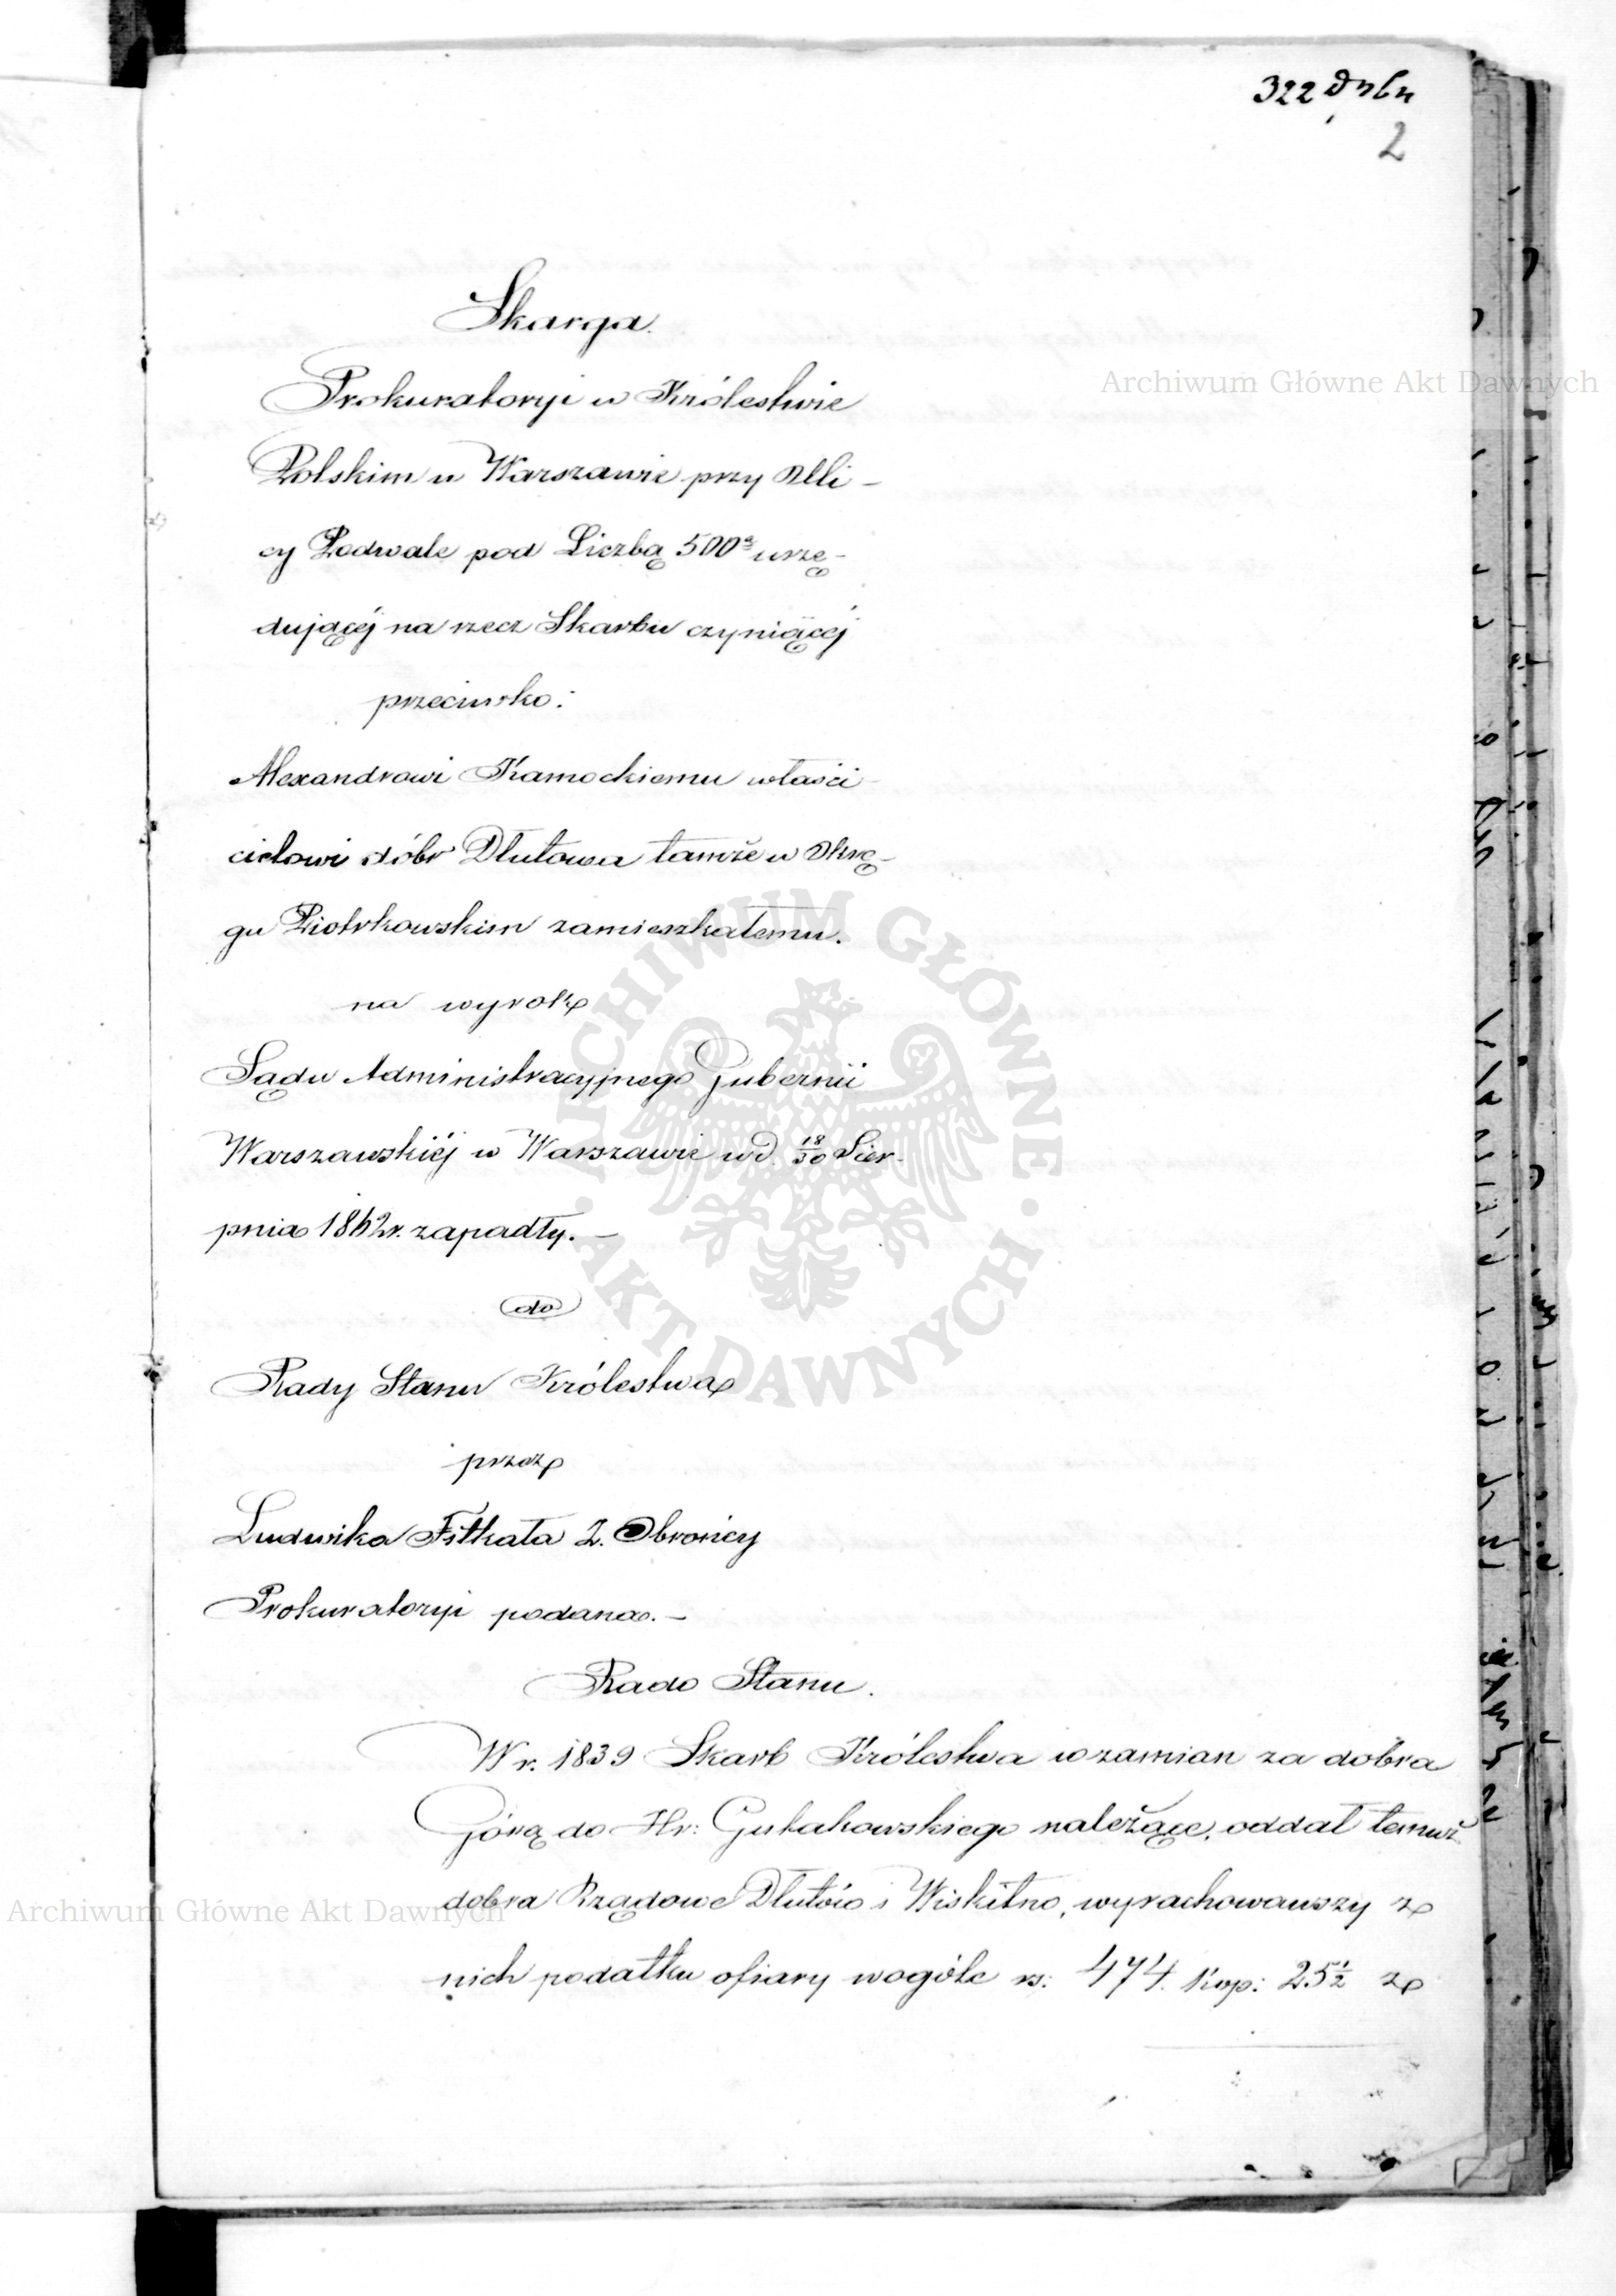 322
2
Skarga.
Prokuratoryi w Królestwie
Archiwum Główne Akt Dawnych
Polskim w Warszawie przy Uli-
cy Podwale pod Liczbą 500a urzę-
dującéj na rzecz Skarbu czyniącéj
przeciwko:
Alexandrowi Kamockiemu właści-
cielowi dóbr Dłutowa tamże w Okrę-
gu Piotrkowskim zamieszkałemu.
na wyrok
Sądu Administracyjnego Gubernii
Warszawskiéj w Warszawie w d. 18/30 Sier-
pnia 1862 r. zapadły. —
do
Rady Stanu Królestwa
przez
Ludwika Obrońcy
Prokuratoryi podana. —
Rado Stanu.
W r. 1839 Skarb Królestwa w zamian za dobra
Górę do Hr: Gutakowskiego należące, oddał temuż
dobra Rządowe Dłutów i Wiskitno, wyrachowawszy z
Archiwum Główne Akt Dawnych
nich podatku ofiary wogóle rs: 474. kop: 25 1/2 z
ARCHIWUM GŁÓWNE · AKT DAWNYCH ·